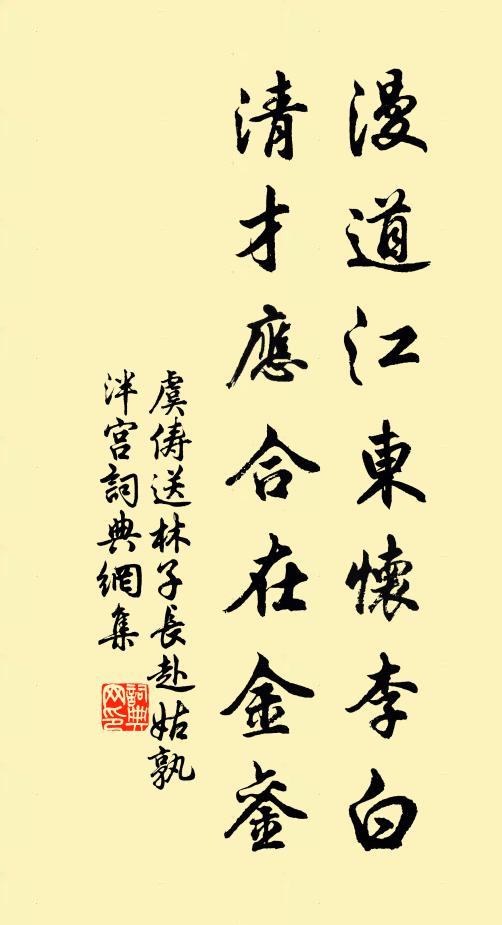 漫道江東懷李白
清才應合在金銮
虞俦送林子長赴姑孰
泮宮詞典網集
詞典
网印